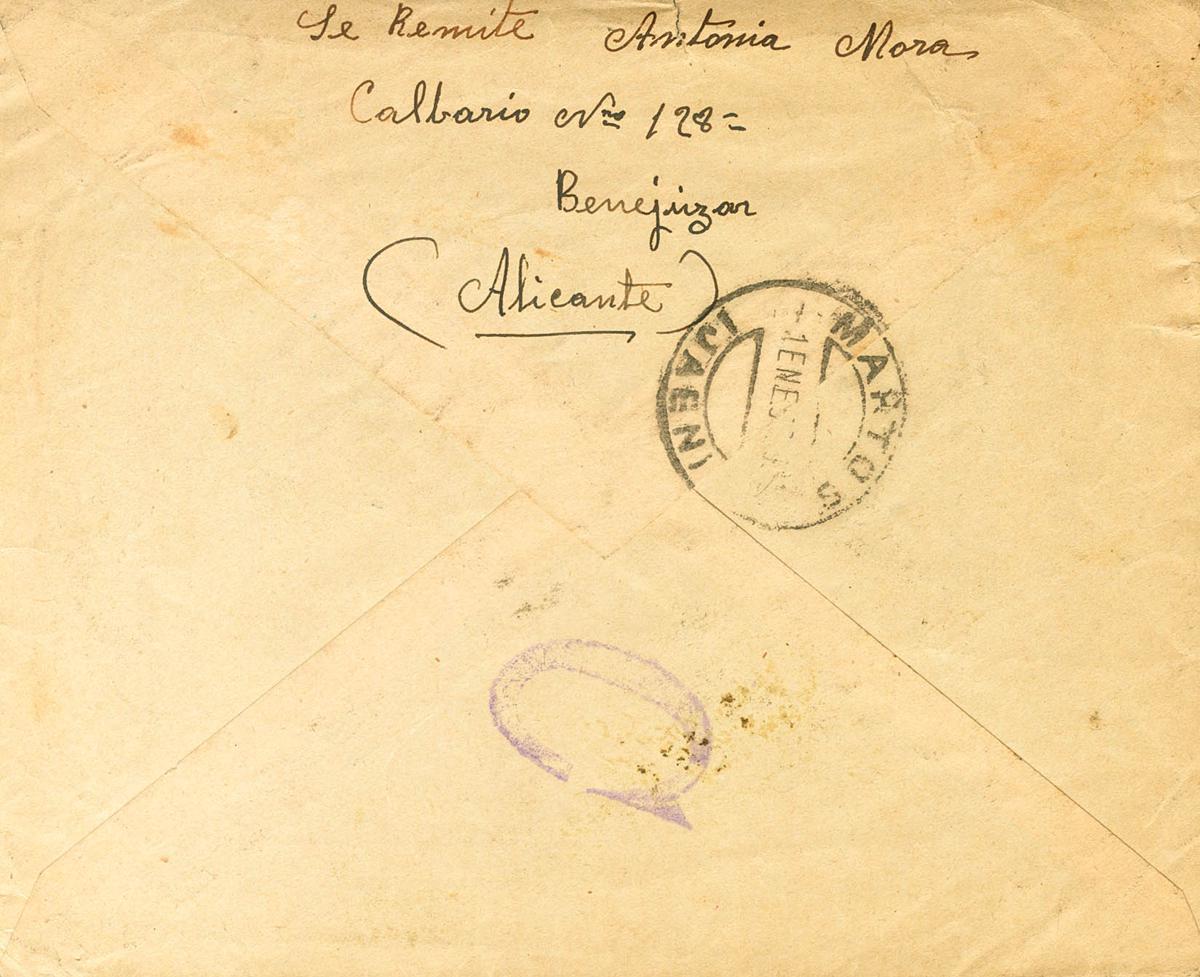 Se Remite Antonia Mora
Calbario Nro 128=
Benejuzar
(Alicante)
MARTOS
(JAEN)
1 ENE